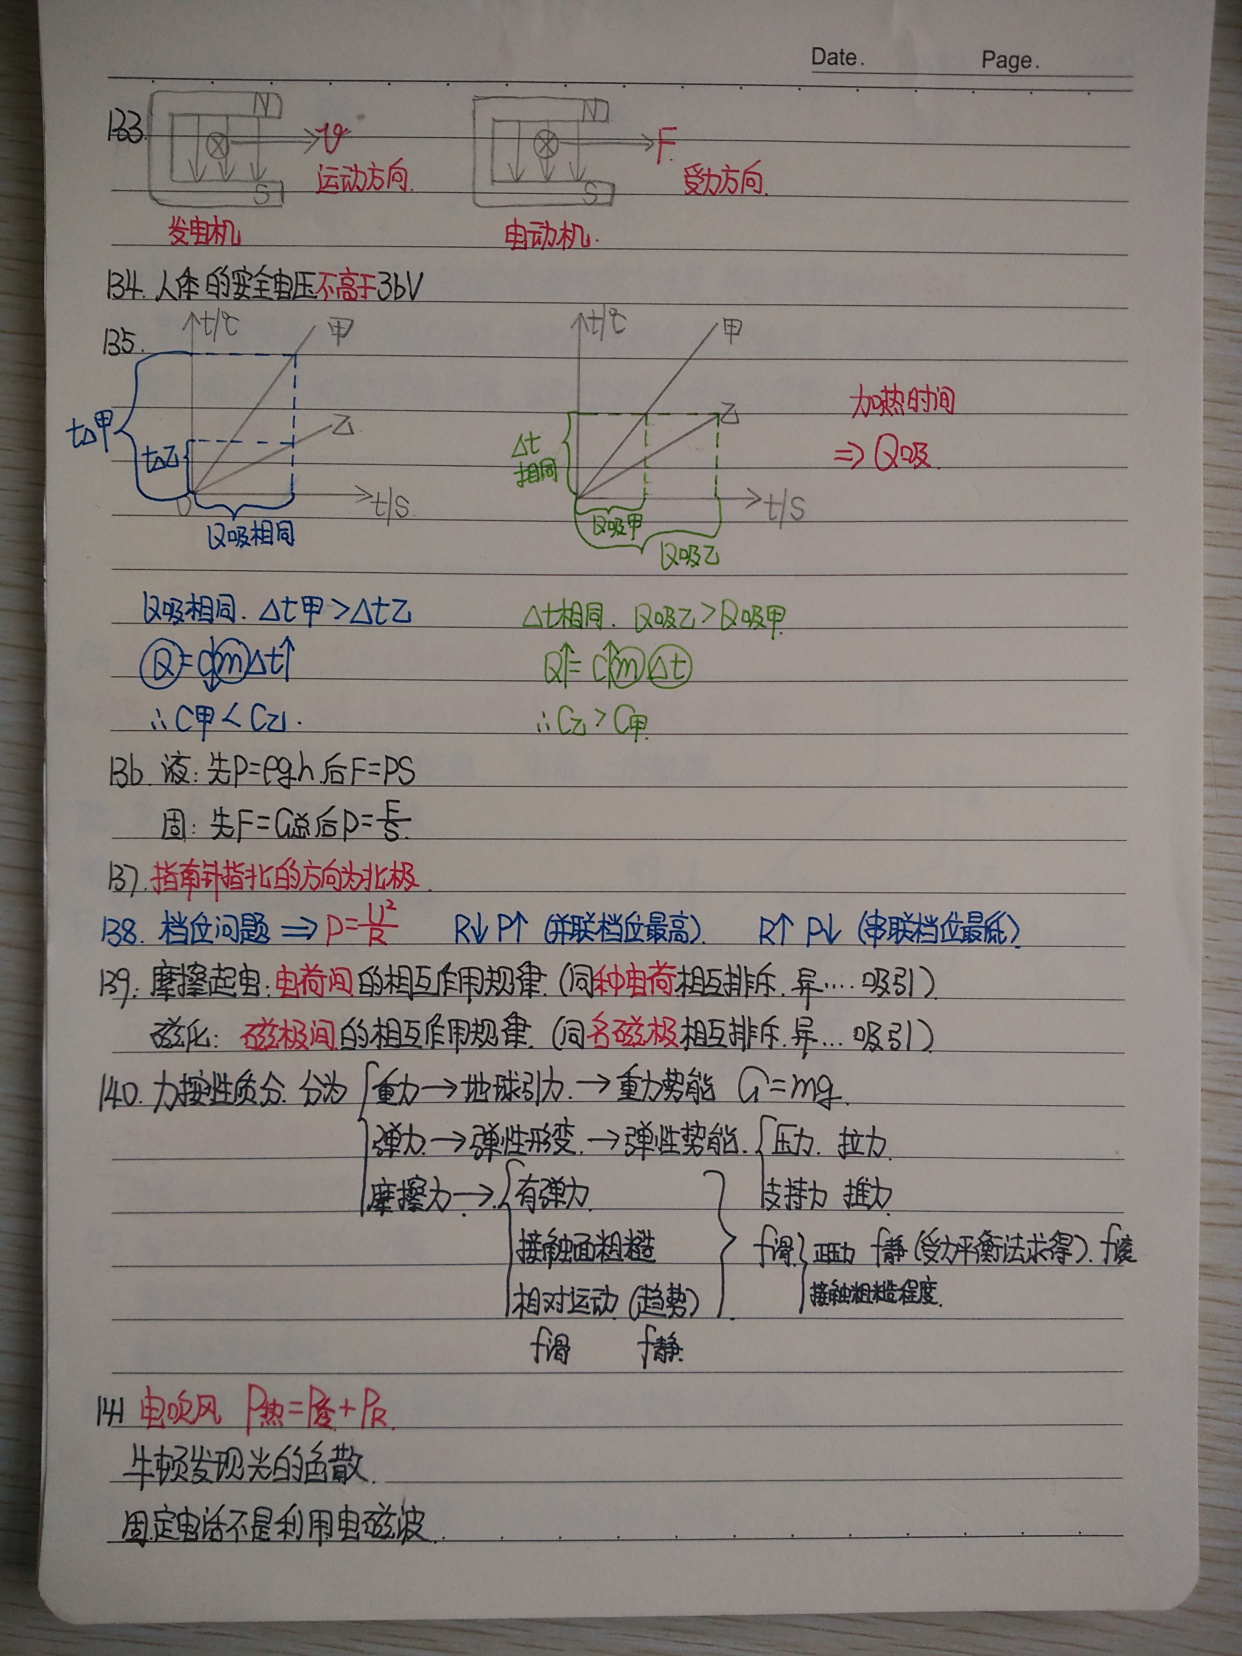 Date. Page.
133. N S v 运动方向. N S F 受力方向.
发电机 电动机.
134. 人体的安全电压不高于36V
135. t/℃ 甲 t/℃ 甲
t△甲 t△乙 乙 Δt相同 乙 加热时间
⇒Q吸.
0 t/S t/S
Q吸相同 Q吸甲 Q吸乙
Q吸相同. Δt甲>Δt乙 Δt相同. Q吸乙>Q吸甲.
Q=c↓mΔt↑ Q↑=c↑mΔt
∴C甲<C乙. ∴C乙>C甲.
136. 液:先P=ρgh后F=PS
固:先F=G总后P=F/S.
137. 指南针指北的方向为北极.
138. 档位问题⇒P=U²/R R↓P↑(并联档位最高). R↑P↓(串联档位最低)
139. 摩擦起电:电荷间的相互作用规律.(同种电荷相互排斥.异....吸引).
磁化:磁极间的相互作用规律.(同名磁极相互排斥.异...吸引)
140. 力按性质分.分为 重力→地球引力.→重力势能 G=mg.
弹力→弹性形变.→弹性势能. 压力. 拉力.
摩擦力→ 有弹力. 支持力 推力.
接触面粗糙 f滑 正压力 f静(受力平衡法求得). f滚
相对运动(趋势) 接触粗糙程度.
f滑 f静.
141 电吹风 P热=P总+PR.
牛顿发现光的色散.
固定电话不是利用电磁波.